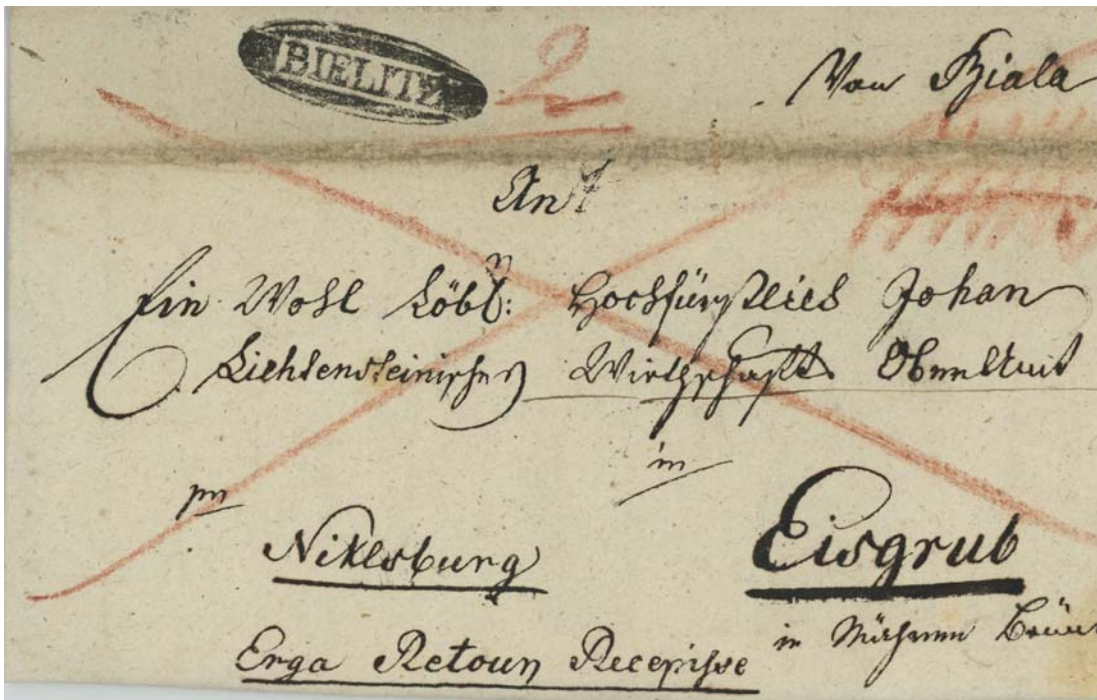 BIELITZ 2 Von Biala
An
Ein Wohl Löbl: Hochfürstlich Johan
Liechtensteinisches Wirthschafts Ober Amt
in
pr
Nikolsburg Eisgrub
in Mähren
Erga Retour Recepisse